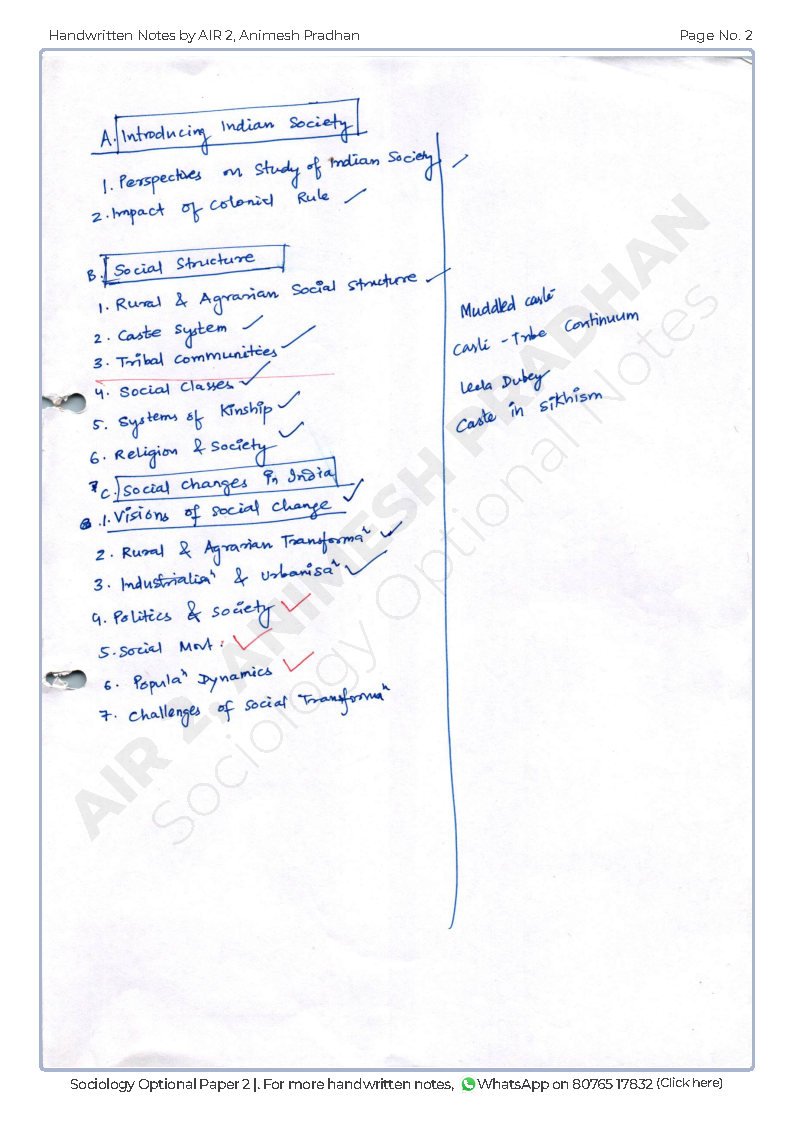 Handwritten Notes by AIR 2, Animesh Pradhan
Page No. 2
A. Introducing Indian Society
1. Perspectives on Study of Indian Society
2. Impact of Colonial Rule
B. Social Structure
1. Rural & Agrarian Social Structure
2. Caste System
3. Tribal Communities
4. Social Classes
5. Systems of Kinship
6. Religion & Society
C. Social Changes in India
1. Visions of Social Change
2. Rural & Agrarian Transformaⁿ
3. Industrialisaⁿ & Urbanisaⁿ
4. Politics & Society
5. Social Movt:
6. Populaⁿ Dynamics
7. Challenges of Social Transformaⁿ
Muddled caste
Caste - Tribe Continuum
Leela Dubey
Caste in Sikhism
AIR 2, ANIMESH PRADHAN
Sociology Optional Notes
Sociology Optional Paper 2 |. For more handwritten notes, WhatsApp on 80765 17832 (Click here)